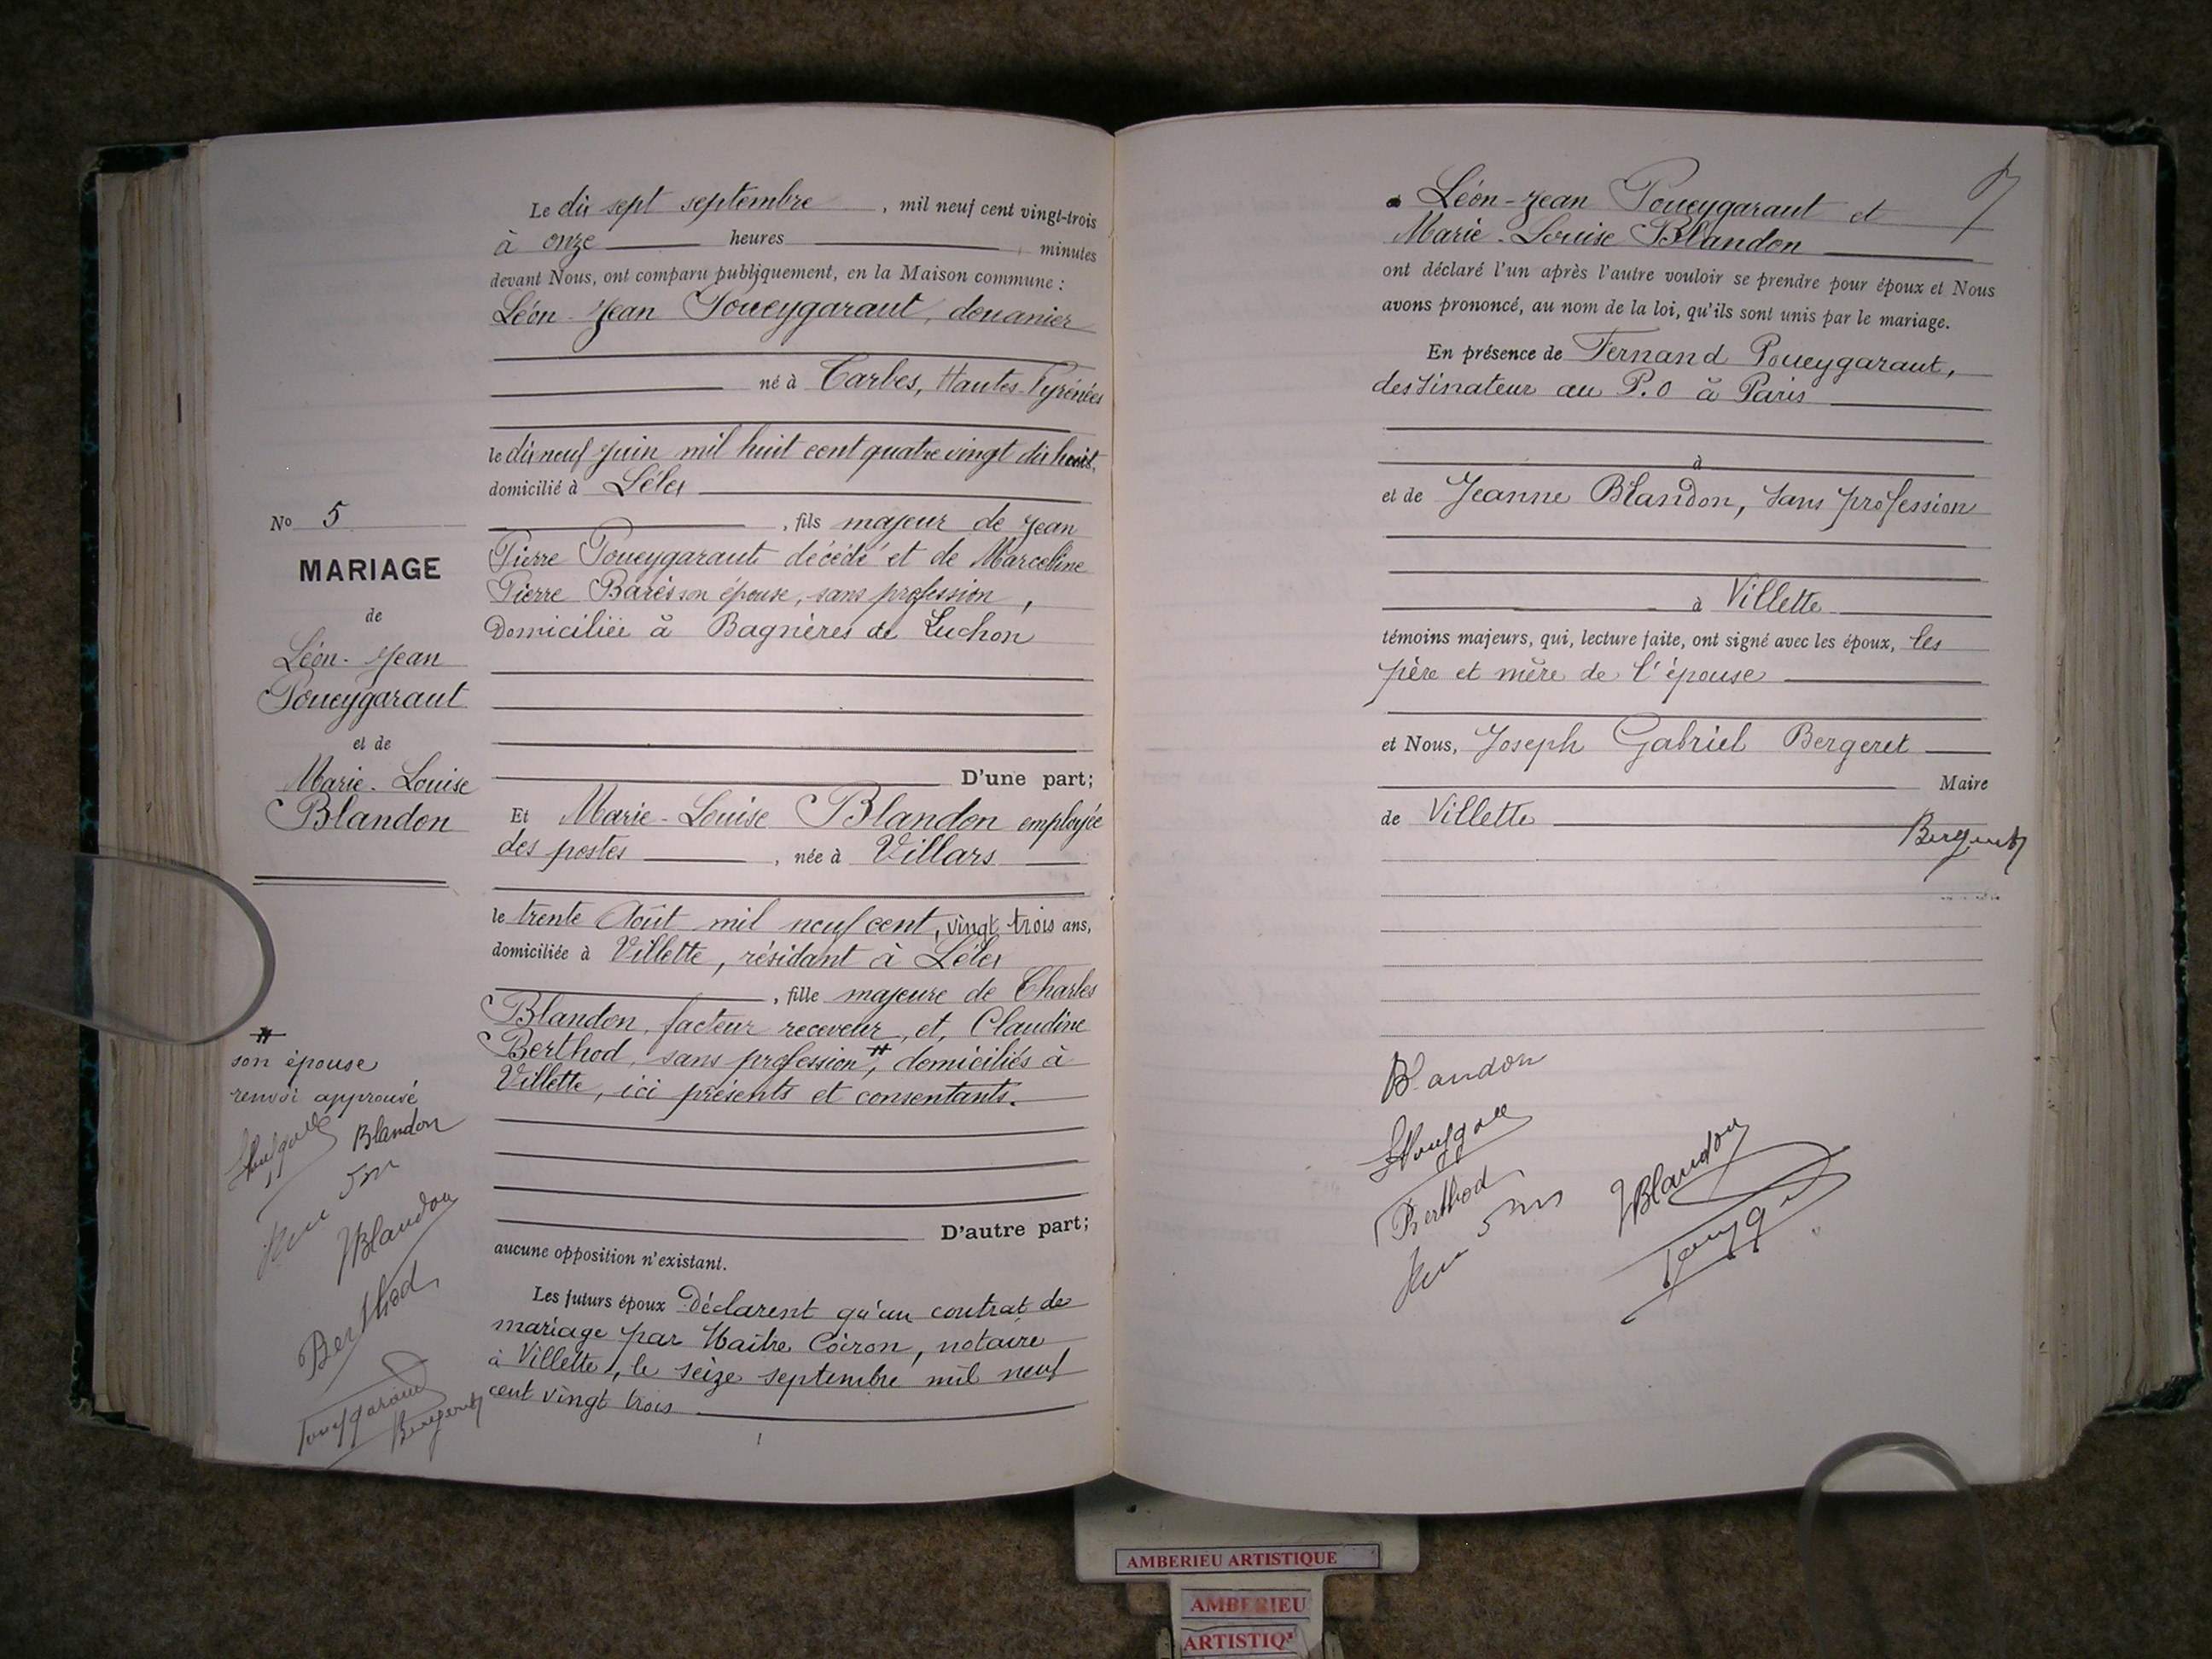 No 5
MARIAGE
de
Léon-Jean
Poueygaraut
et de
Marie-Louise
Blandon
#
son épouse
renvoi approuvé
Blandon
JBlandon
Berthod
Poueygaraut
Bergeret
Le dix sept septembre, mil neuf cent vingt-trois
à onze heures minutes
devant Nous, ont comparu publiquement, en la Maison commune :
Léon-Jean Poueygaraut, douanier
né à Tarbes, Hautes-Pyrénées
le dix neuf Juin mil huit cent quatre vingt dix huit,
domicilié à Lélex
, fils majeur de Jean
Pierre Poueygaraut décédé et de Marceline
Pierre Barès son épouse, sans profession,
Domiciliée à Bagnères de Luchon
D'une part;
Et Marie-Louise Blandon employée
des postes, née à Villars
le trente Août mil neuf cent, vingt trois ans,
domiciliée à Villette, résidant à Lélex
, fille majeure de Charles
Blandon, facteur receveur, et, Claudine
Berthod, sans profession #, domiciliés à
Villette, ici présents et consentants.
D'autre part;
aucune opposition n'existant.
Les futurs époux Déclarent qu'un contrat de
mariage par Maître Coiron, notaire
à Villette, le seize septembre mil neuf
cent vingt trois
7
Léon-Jean Poueygaraut et
Marie-Louise Blandon
ont déclaré l'un après l'autre vouloir se prendre pour époux et Nous
avons prononcé, au nom de la loi, qu'ils sont unis par le mariage.
En présence de Fernand Poueygaraut,
dessinateur au P.O à Paris
à
et de Jeanne Blandon, sans profession
à Villette
témoins majeurs, qui, lecture faite, ont signé avec les époux, les
père et mère de l'épouse
et Nous, Joseph Gabriel Bergeret
Maire
de Villette
Bergeret
Blandon
Berthod
JBlandon
AMBERIEU ARTISTIQUE
AMBERIEU
ARTISTIQ